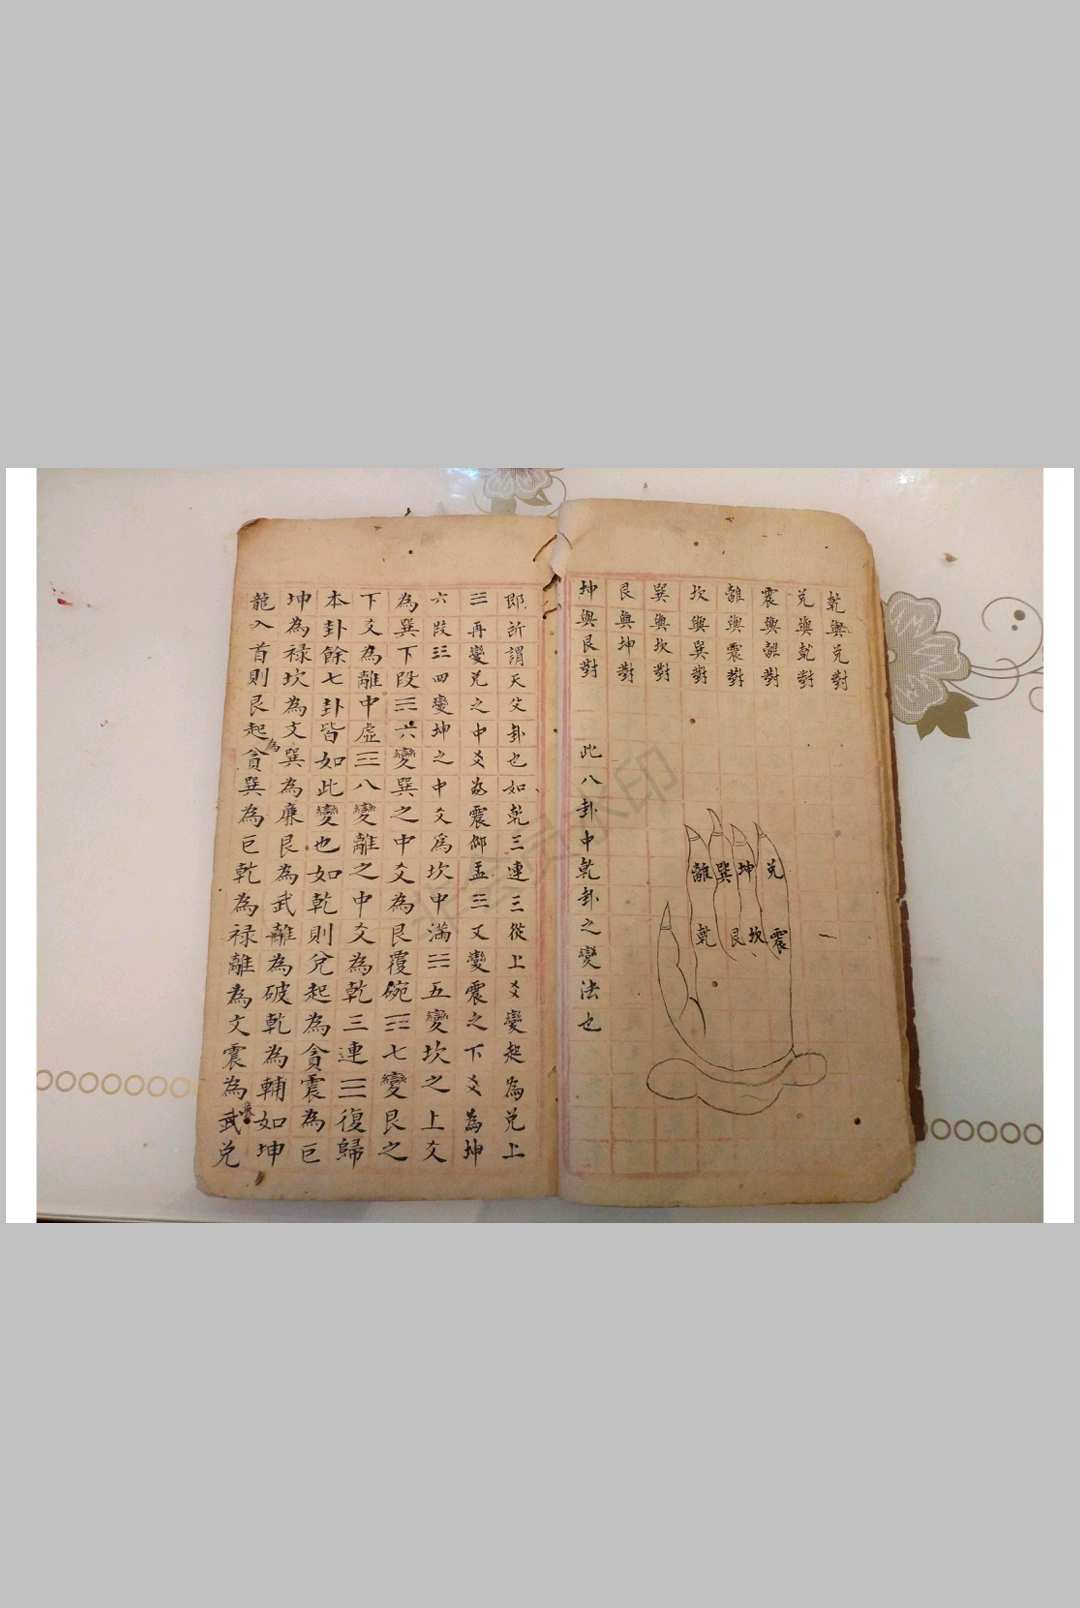 乾與兌對
兌與乾對
震與離對
離與震對
坎與巽對
巽與坎對
艮與坤對
坤與艮對 此八卦中乾卦之變法也
兌 坤 巽 離
震 坎 艮 乾
即所謂天父卦也如乾三連☰從上爻變起為兌上
☱再變兌之中爻為震仰盂☳又變震之下爻為坤
六段☷四變坤之中爻為坎中滿☵五變坎之上爻
為巽下段☴六變巽之中爻為艮覆碗☶七變艮之
下爻為離中虛☲八變離之中爻為乾三連☰復歸
本卦餘七卦皆如此變也如乾則兌起為貪震為巨
坤為祿坎為文巽為廉艮為武離為破乾為輔如坤
龍入首則艮起為貪巽為巨乾為祿離為文震為武兌